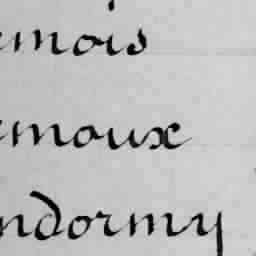 emois
emoux
ndormy